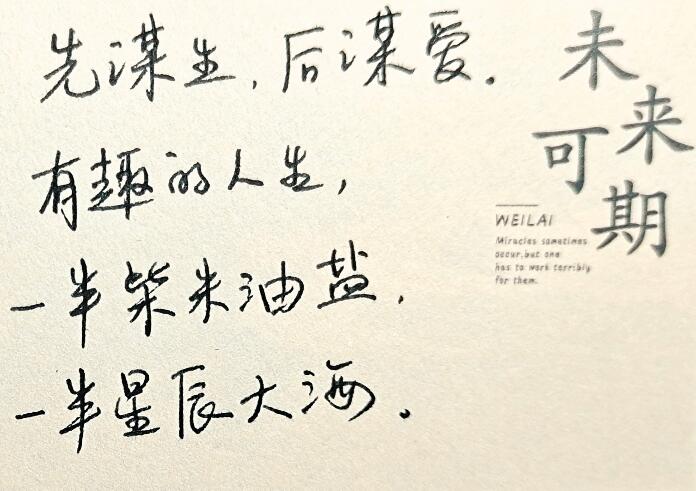 先谋生，后谋爱。
有趣的人生，
一半柴米油盐，
一半星辰大海。
未来可期
WEILAI
Miracles sometimes
occur, but one
has to work terribly
for them.